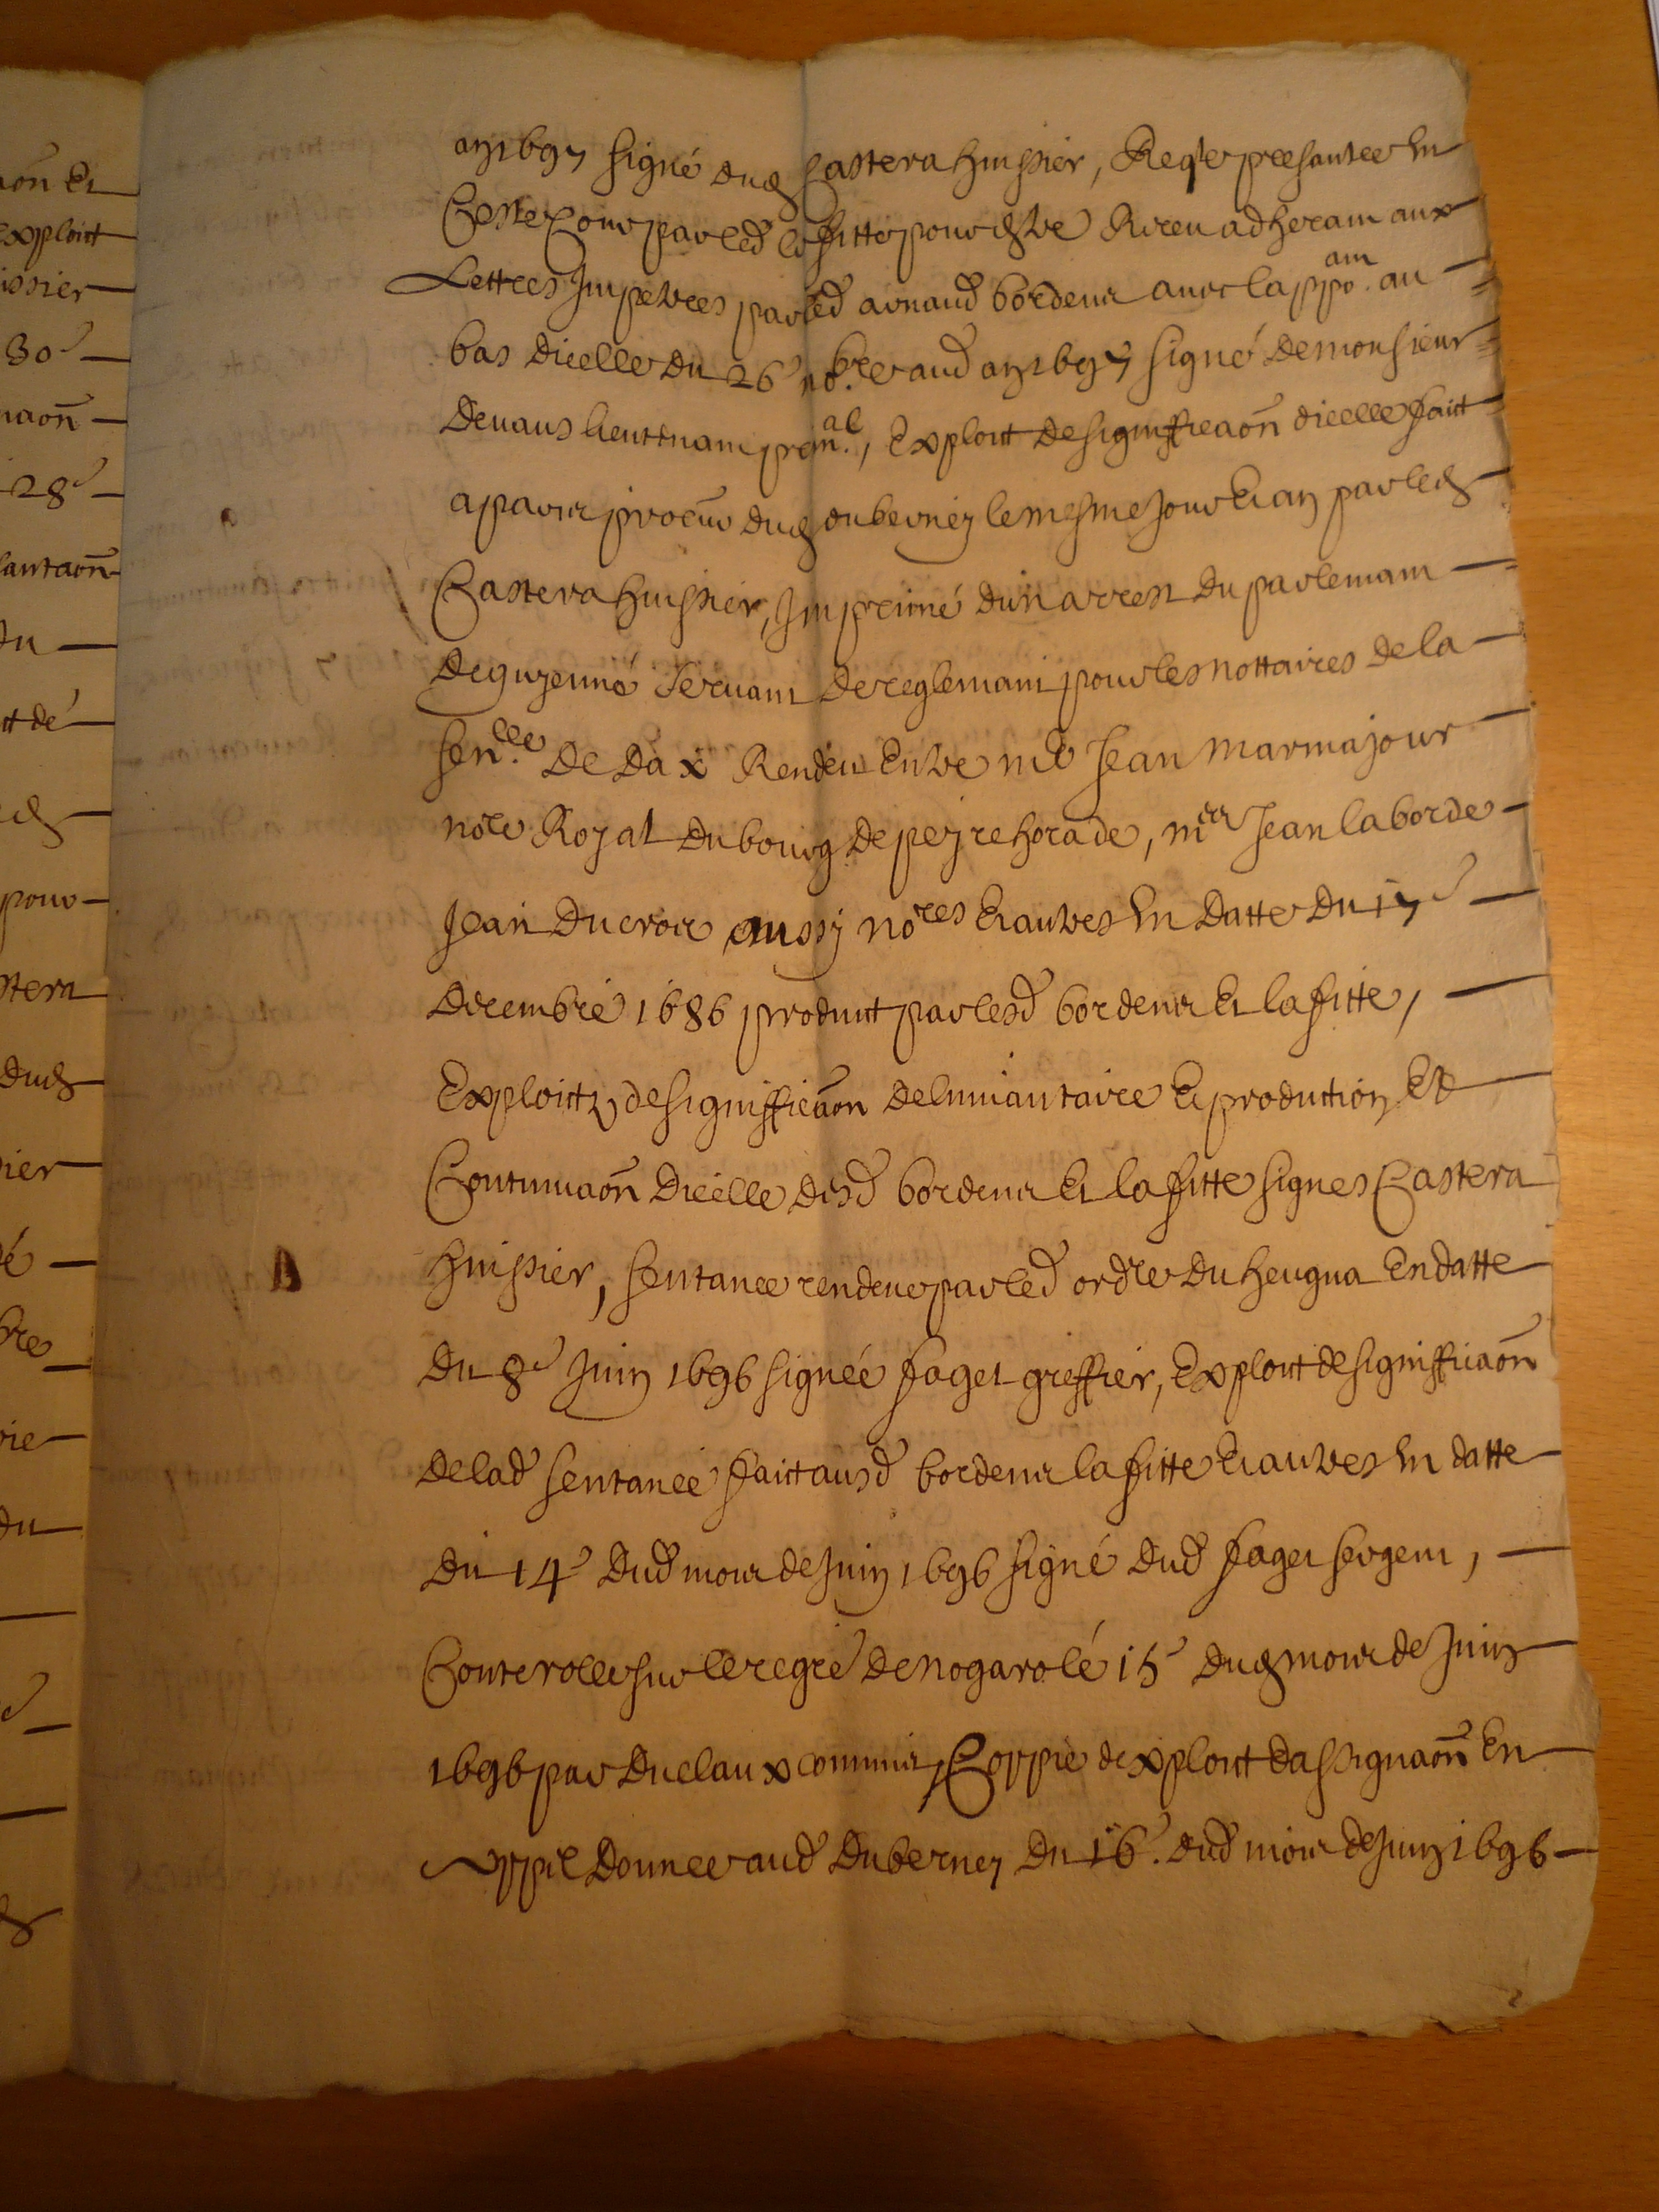 an 1697 signé dud Castera huissier, Reqte presantee en
Ceste Cour par led lafitte pour estre Receu adherant aux
Lettres Impetrees par led arnaud bordenr avec lappoam. au
bas dicelle du 26e nobre aud an 1697 signé de monsieur
devans lieutenant prinal., Exploit de signifficaon dicelle faict
a procur dud duberney le mesme jour Et an par led
Castera huissier, Imprimé dun arrest du parlemant
de guyenne servant de reglemant pour les nottaires de la
senlle. de Dax Rendeu Entre me Jean marmajour
nore Royal du bourg de peyrehorade, mes Jean laborde
Jean ducroix aussy nores Et autres En datte du 17e
decembre 1686 produict par lesd bordenr Et lafitte,
Exploictz de signifficaon de linvantaire Et production Et
Continuaon dicelle desd bordenr Et lafitte signes Castera
huissier, sentance rendeue par led ordre du heugua En datte
du 8e Juin 1696 signée faget greffier, Exploit de signifficaon
de lad sentance faict ausd bordenr lafitte Et autres En datte
du 14e dud mois de Juin 1696 signé dud faget sergent,
Conterolle sur le regre de nogaro le 15e dud mois de Juin
1696 par Duclaux commis, Coppie dexploit dassignaon En
appel donnee aud Duberney du 16e. dud mois de Juin 1696
aon Et
Exploict
issier
30e
naon
28e
santaon
du
ct de
ed
pour
stera
dud
ier
é
bre
rie
du